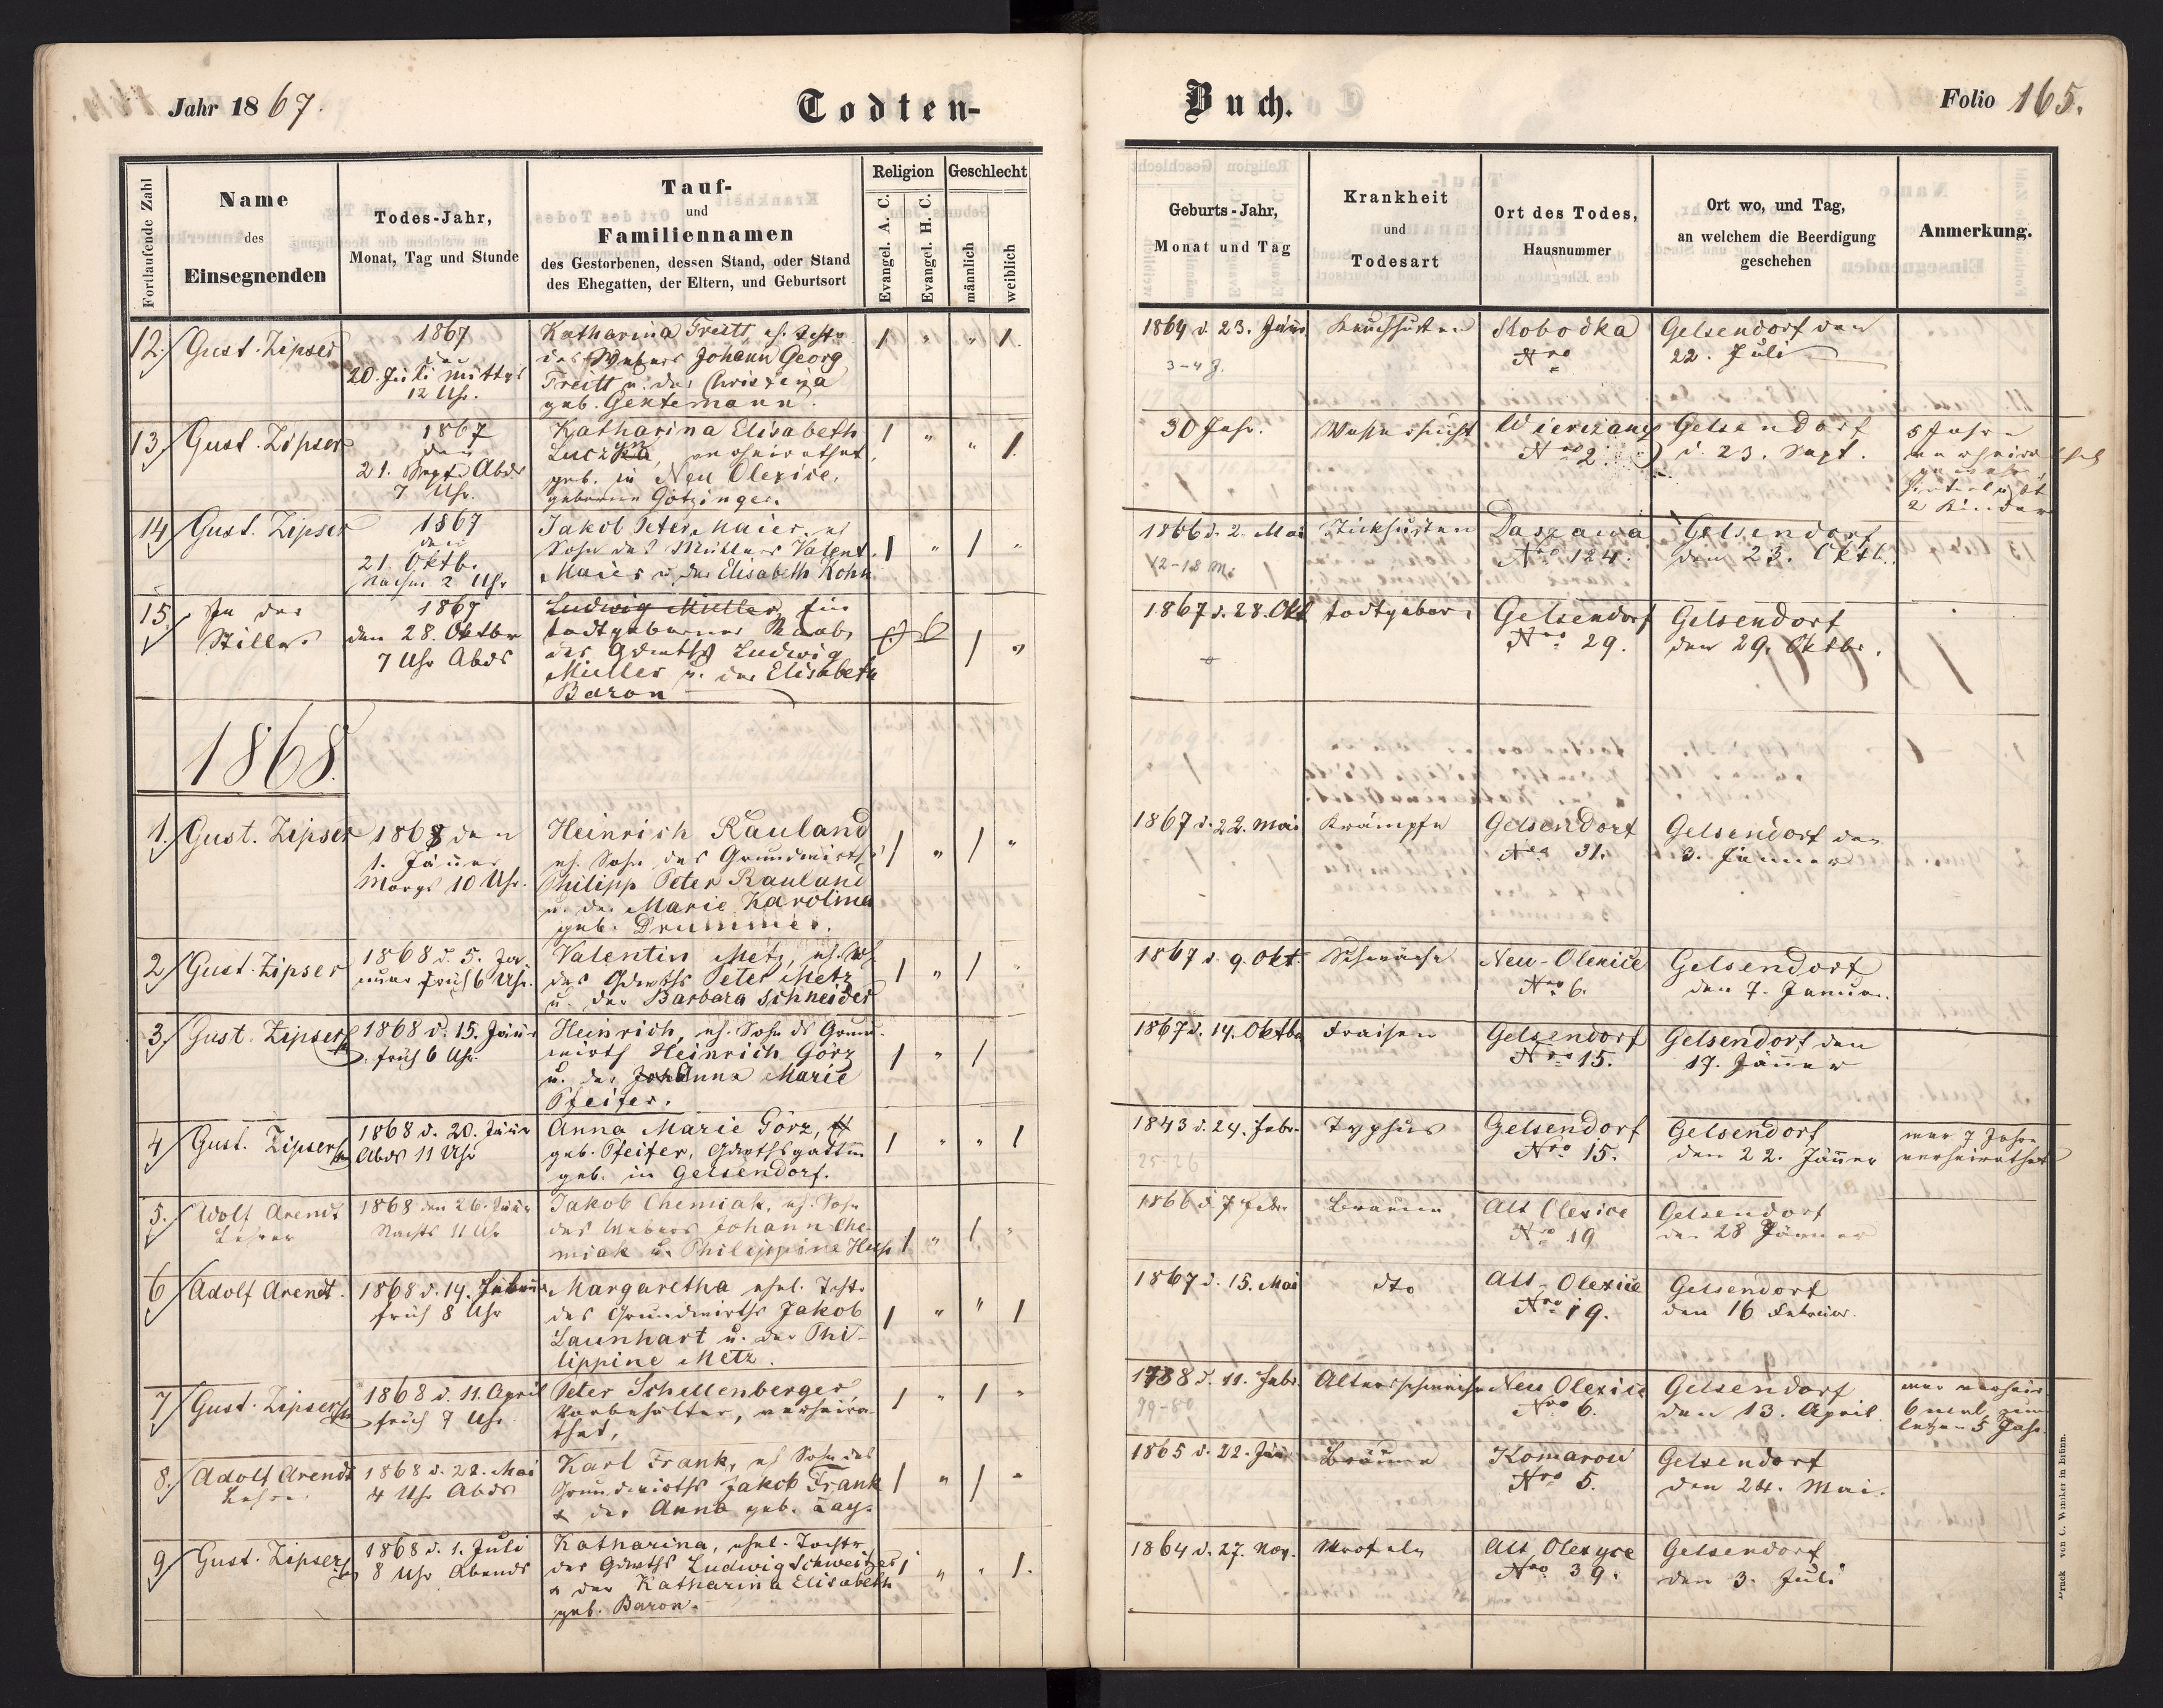 Jahr 1867.
Todten-
Buch.
Folio 165.
Fortlaufende Zahl
Name
des
Einsegnenden
Todes-Jahr,
Monat, Tag und Stunde
Tauf-
und
Familiennamen
des Gestorbenen, dessen Stand, oder Stand
des Ehegatten, der Eltern, und Geburtsort
Religion
Evangel. A. C.
Evangel. H. C.
Geschlecht
männlich
weiblich
Geburts-Jahr,
Monat und Tag
Krankheit
und
Todesart
Ort des Todes,
Hausnummer
Ort wo, und Tag,
an welchem die Beerdigung
geschehen
Anmerkung.
12. Gust. Zipser
1867
den
20. Juli mittgs
12 Uhr.
Katharina Freitt, eh. Toht.
des Webers Johann Georg
Freitt u. der Christina
geb. Gentemann.
1 " " 1.
1864 d. 23. Jän
3-4 J.
Keuchhusten
Slobodka
Nro
Gelsendorf den
22. Juli
13. Gust. Zipser
1867
den
21. Sept. Abds
7 Uhr.
Katharina Elisabeth
verheirathet,
geb. in Neu Olexice,
geborene Götzinger.
1 " " 1.
30 Jahr.
Wassersucht
Nro 2.
Gelsendorf
d. 23. Sept.
5 Jahre
verheirathet
hinterläßt
2 Kinder
14 Gust. Zipser
1867
den
21. Oktb.
Nachm 2 Uhr
Jakob Peter Maier, eh
Sohn des Müllers Valent.
Maier u. der Elisabeth Kohn
1 " 1 "
1866 d. 2. Mai
12-18 M.
Stickhusten
Daszawa
Nro 124.
Gelsendorf
den 23. Oktb.
15. In der
Stille
1867
den 28. Oktbr
7 Uhr Abds
Ludwig Müller, Ein
todtgeborner Knabe
des Gdwths Ludwig
Müller u. der Elisabeth
Baron
1 "
1867 d. 28. Okt
todtgebor.
Gelsendorf
Nro 29.
Gelsendorf
den 29. Oktbr.
1868.
1. Gust. Zipser
1868 den
1. Jänner
Morgs 10 Uhr.
Heinrich Rauland
eh. Sohn des Grundwirths
Philipp Peter Rauland
u. der Marie Karolina
geb. Drummer.
1 " 1 "
1867 d. 22. Mai
Krämpfe
Gelsendorf
Nro 31.
Gelsendorf den
3. Jänner
2 Gust. Zipser
1868 d. 5. Ja-
nuar früh 6 Uhr.
Valentin Metz, eh. Sh
des Gdwths Peter Metz
u. der Barbara Schneider
1 " 1 "
1867 d. 9. Okt.
Schwäche
Neu-Olexice
Nro 6.
Gelsendorf
den 7. Januar.
3. Gust. Zipser
1868 d. 15. Jänr
früh 6 Uhr.
Heinrich, eh. Sohn ds Grund-
wirths Heinrich Görz
u. der Anna Marie
Pfeifer.
1 " 1
1867 d. 14. Oktbr
Fraisen
Gelsendorf
Nro 15.
Gelsendorf den
17. Jänner
4 Gust. Zipser
1868 d. 20. Jänr
Abds 11 Uhr
Anna Marie Görz,
geb. Pfeifer, Gdwthsgattin
geb. in Gelsendorf.
1 " " 1
1843 d. 24. Febr.
25-26
Typhus
Gelsendorf
Nro 15.
Gelsendorf
den 22. Jänner
war 7 Jahre
verheirathet
5. Adolf Arendt
Lehrer
1868 den 26. Jänr
Nachts 11 Uhr
Jakob Chemiak, eh. Sohn
des Webers Johann Che-
miak u. Philippine
1 " 1 "
1866 d. 7 Febr.
Bräune
Alt Olexice
Nro 19
Gelsendorf
den 28 Jänner
6 Adolf Arendt.
1868 d. 14. Februar
früh 8 Uhr
Margaretha ehel. Toht.
des Grundwirths Jakob
Launhart u. der Phi-
lippine Metz.
1 " " 1
1867 d. 15. Mai
dto
Alt-Olexice
Nro 19.
Gelsendorf
den 16 Februar.
7 Gust. Zipser
1868 d. 11. April
früh 7 Uhr.
Peter Schellenberger,
Vorbehalter, verheira-
thet,
1 " 1 "
1788 d. 11. Febr.
79-80
Altersschwäche
Neu Olexice
Nro 6.
Gelsendorf
den 13. April.
war verheir.
6 mal, zum
letzen 5 Jahr.
8. Adolf Arendt
Lehrer
1868 d. 22. Mai
4 Uhr Abds
Karl Frank, eh Sohn des
Grundwirths Jakob Frank
& der Anna geb. Lay.
1 " 1 "
1865 d. 22. Jän
Bräune
Komarow
Nro 5.
Gelsendorf
den 24. Mai.
9. Gust. Zipser
1868 d. 1. Juli
8 Uhr Abends
Katharina, ehel. Tochtr
des Gdwths Ludwig Schweitzer
& der Katharina Elisabeth
geb. Baron.
1 " " 1.
1864 d. 27. Nov.
Alt Olexyce
Nro 39.
Gelsendorf
den 3. Juli
Druck von C. Winiker in Brünn.